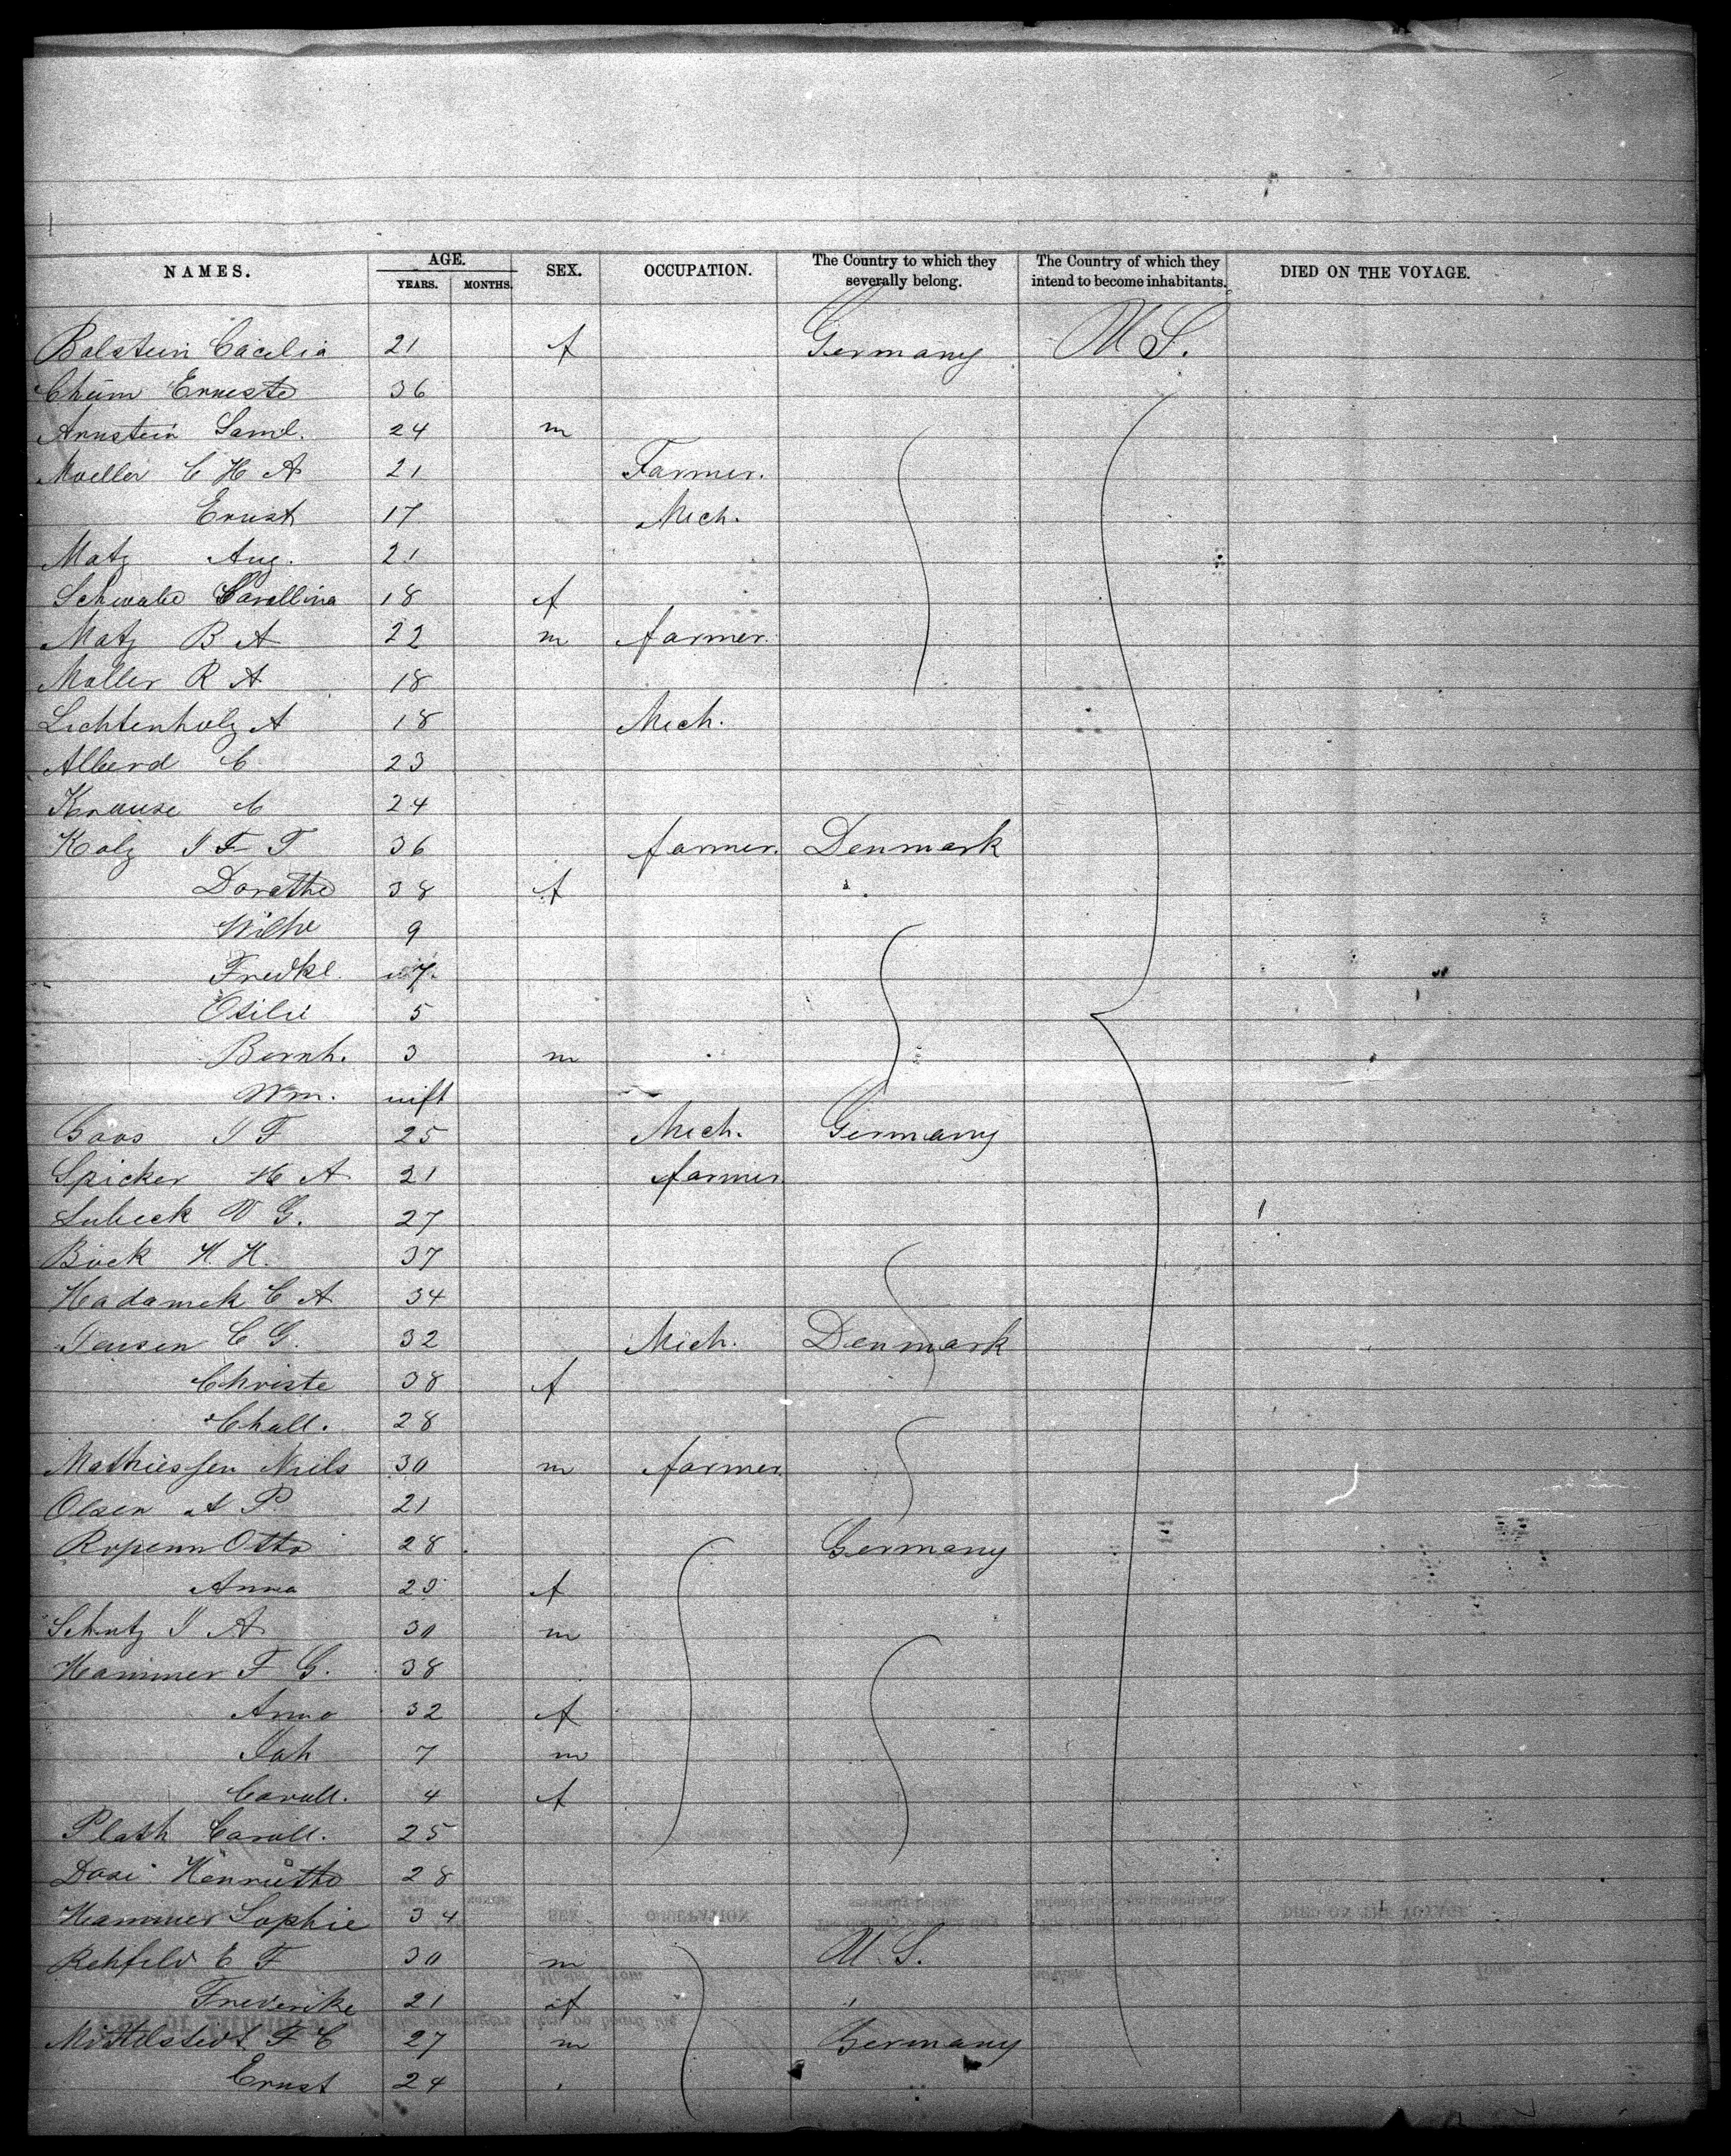 NAMES. AGE. SEX. OCCUPATION. The Country to which they severally belong. The Country of which they intend to become inhabitants. DIED ON THE VOYAGE.
YEARS. MONTHS.
Balstein Cacilia 21 f Germany U S.
Erneste 36
Arnstein Saml. 24 m
Moeller C H A 21 Farmer.
Ernst 17 Mech.
Matz Aug. 21
Schwabe Carollina 18 f
Matz B A 22 m farmer.
Moller R A 18
Lichtenholz A 18 Mech.
Alberd C 23
Krause C 24
Kolz J F T 36 farmer. Denmark
Dorathe 38 f "
Wilhe 9
Fredke. 7
Otilie 5
Bernh. 3 m
Wm. inft
J F 25 Mech. Germany
Spicker H A 21 farmer
Lubeck W G. 27
Böck H. H. 37
Hadamek C A 34
Jensen C G. 32 Mech. Denmark
Christe 38 f
28
Mathiessen Niels 30 m farmer
Olsen A P 21
Ropenn Otto 28 Germany
Anna 25 f
Schutz J A 30 m
Hammer F G. 38
Anna 32 f
Joh 7 m
Caroll. 4 f
Plath Caroll. 25
Dose Henriette 28
Hammer Sophie 34
Rehfeld C F 30 m U S.
Frederike 21 f "
Mittelstedt F C 27 m Germany
Ernst 24 "